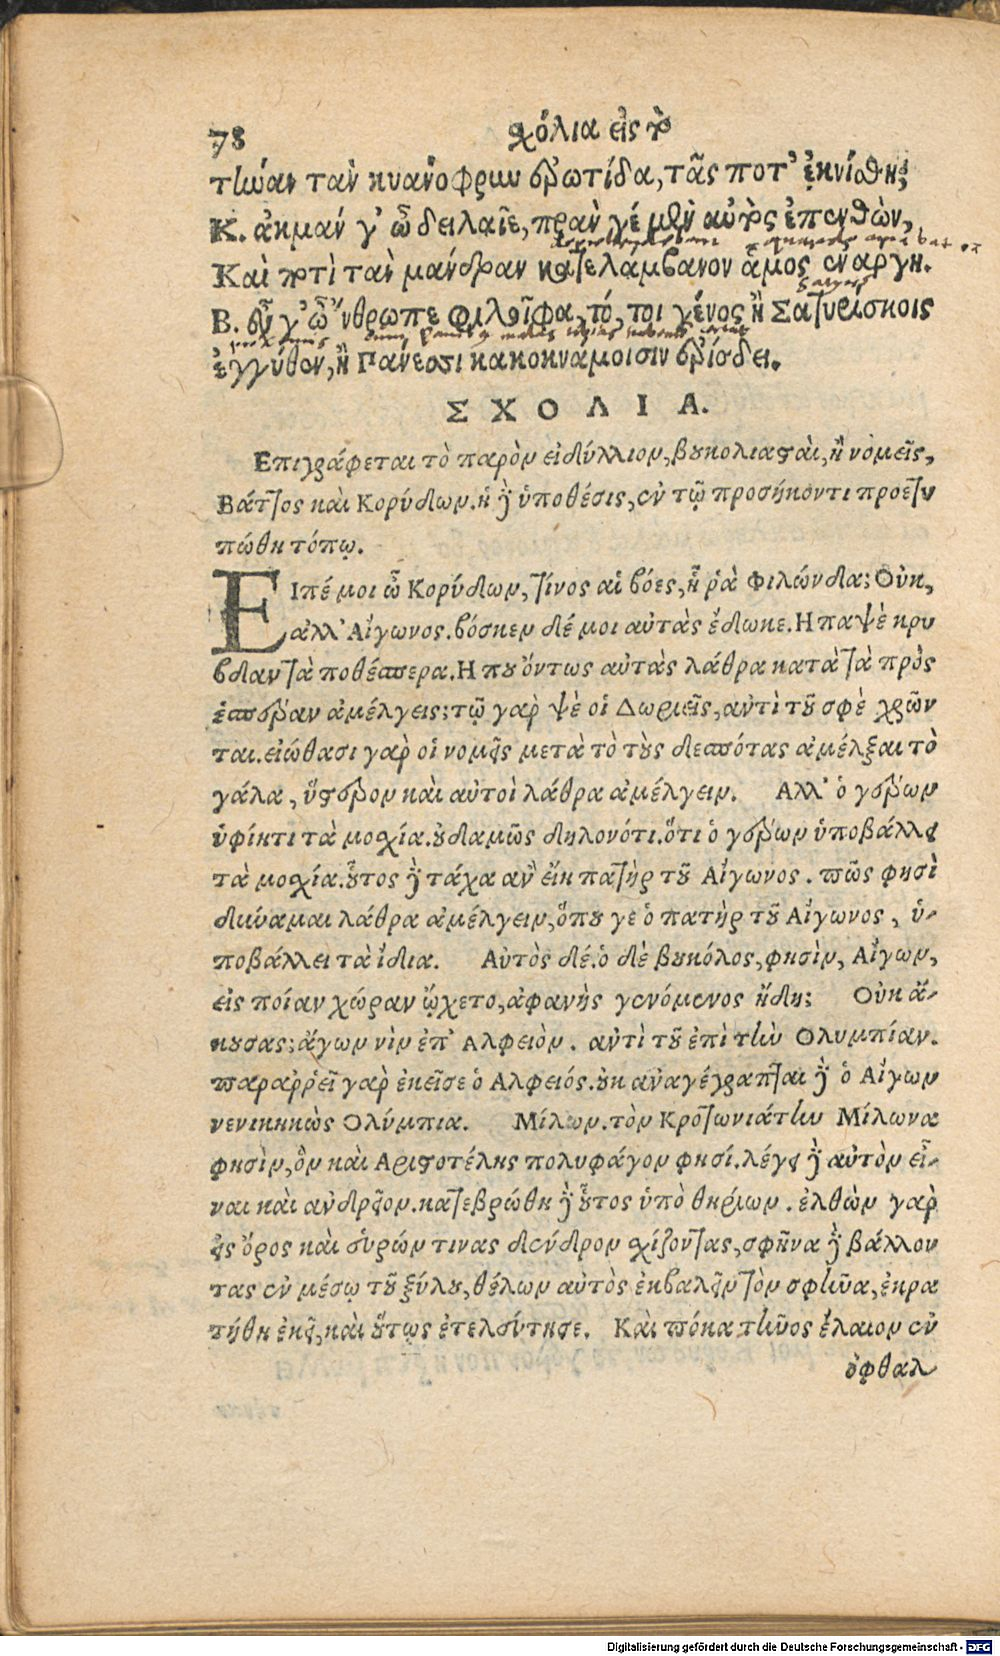 78 σχόλια εἰς τὸ
τήναν τὰν κυανόφρυν ἐρωτίδα, τᾶς ποτ' ἐκνίσθη;
Κ. ἀκμάν γ' ὦ δειλαῖε, πρὰν γέ μὲν αὐτὸς ἐπενθὼν,
Καὶ ποτὶ τὰν μάνδραν κατελάμβανον ἇμος ἐνάργη.
Β. εὖ γ' ὦ 'νθρωπε φιλοῖφα, τό, τοι γένος ἢ Σατυρίσκοις
ἐγγύθεν, ἢ Πάνεσσι κακοκνάμοισιν ἐρίσδει.
ΣΧΟΛΙΑ.
Επιγράφεται τὸ παρὸν εἰδύλλιον, βουκολιασταὶ, ἢ νομεῖς,
Βάττος καὶ Κορύδων. ἡ δὲ ὑπόθεσις, ἐν τῷ προσήκοντι προετυ
πώθη τόπῳ.
ΕΙπέ μοι ὦ Κορύδων, τίνος αἱ βόες, ἦ ῥὰ Φιλώνδα; Οὐκ,
ἀλλ' Αἴγωνος. βόσκεν δέ μοι αὐτὰς ἔδωκε. Η πα ψὲ κρυ
βδαν τὰ ποθέσπερα. Η που ὄντως αὐτὰς λάθρα κατὰ τὰ πρὸς
ἑσπέραν ἀμέλγεις; τῷ γαρ ψὲ οἱ Δωριεῖς, αντὶ τοῦ σφὲ χρῶν
ται. εἰώθασι γαρ οἱ νομεῖς μετὰ τὸ τοὺς δεσπότας αμέλξαι τὸ
γάλα, ὕστερον καὶ αὐτοὶ λάθρα ἀμέλγειν. Αλλ' ὁ γέρων
ὑφίητι τὰ μοσχία. οὐδαμῶς δηλονότι. ὅτι ὁ γέρων ὑποβάλλει
τὰ μοσχία. οὗτος δὲ τάχα ἂν εἴη πατὴρ τοῦ Αἴγωνος. πῶς φησὶ
δύναμαι λάθρα ἀμέλγειν, ὅπου γε ὁ πατὴρ τοῦ Αἴγωνος, ὑ-
ποβάλλει τὰ ἴδια. Αὐτὸς δέ. ὁ δὲ βουκόλος, φησὶν, Αἴγων,
εἰς ποίαν χώραν ᾤχετο, ἀφανὴς γενόμενος ἤδη; Οὐκ ἄ-
κουσας; ἄγων νὶν ἐπ' Αλφειὸν. αντὶ τοῦ ἐπὶ τὴν Ολυμπίαν.
παραῤῥεῖ γαρ ἐκεῖσε ὁ Αλφειός. οὐκ αναγέγραπται δὲ ὁ Αἴγων
νενικηκὼς Ολύμπια. Μίλων. τὸν Κροτωνιάτην Μίλωνα
φησὶν, ὃν καὶ Αριστοτέλης πολυφάγον φησί. λέγει δὲ αὐτὸν εἶ-
ναι καὶ ανδρεῖον. κατεβρώθη δὲ οὗτος ὑπὸ θηρίων. ἐλθὼν γαρ
εἰς ὄρος καὶ εὑρών τινας δένδρον σχίζοντας, σφῆνα δὲ βάλλον
τας ἐν μέσῳ τοῦ ξύλου, θέλων αὐτὸς ἐκβαλεῖν τὸν σφῆνα, ἐκρα
τήθη ἐκεῖ, καὶ οὕτως ἐτελεύτησε. Καὶ πόκα τῆνος ἔλαιον ἐν
ὀφθαλ
Digitalisierung gefördert durch die Deutsche Forschungsgemeinschaft - DFG